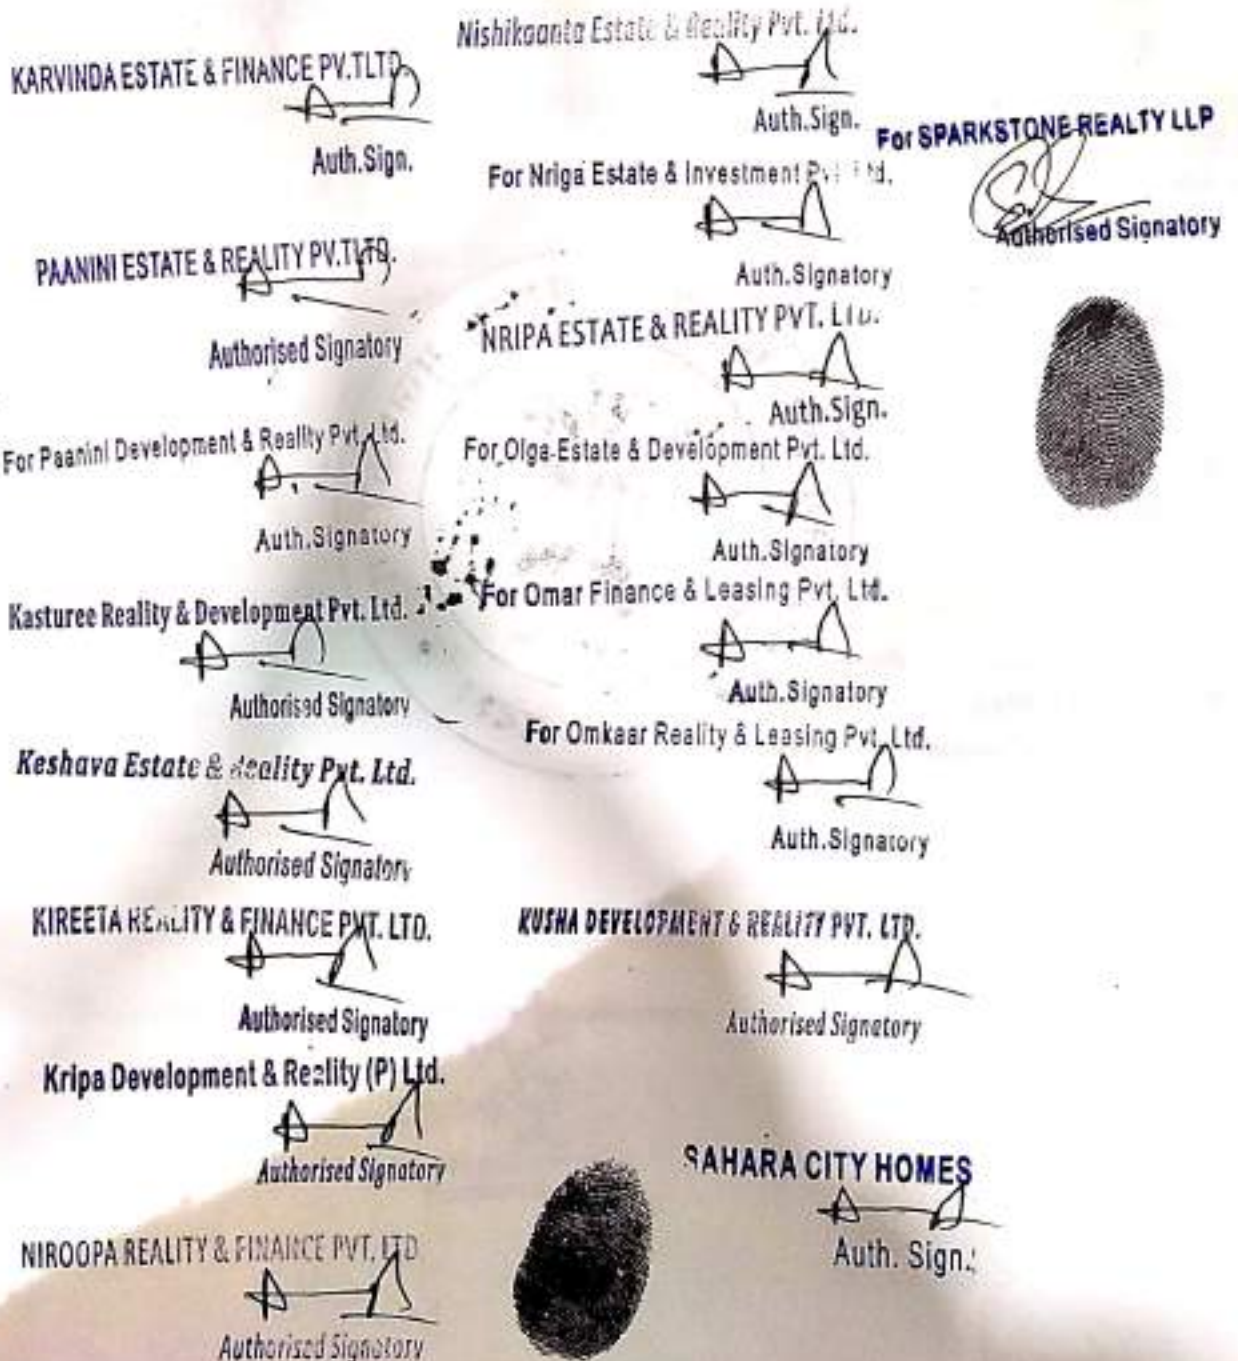 KARVINDA ESTATE & FINANCE PV.TLTD.
Auth.Sign.
PAANINI ESTATE & REALITY PV.TLTD.
Authorised Signatory
For Paanini Development & Reality Pvt. Ltd.
Auth.Signatory
Kasturee Reality & Development Pvt. Ltd.
Authorised Signatory
Keshava Estate & Reality Pvt. Ltd.
Authorised Signatory
KIREETA REALITY & FINANCE PVT. LTD.
Authorised Signatory
Kripa Development & Reality (P) Ltd.
Authorised Signatory
NIROOPA REALITY & FINANCE PVT. LTD
Authorised Signatory
Nishikaanta Estate & Reality Pvt. Ltd.
Auth.Sign.
For Nriga Estate & Investment Pvt. Ltd.
Auth.Signatory
NRIPA ESTATE & REALITY PVT. LTD.
Auth.Sign.
For Olga Estate & Development Pvt. Ltd.
Auth.Signatory
For Omar Finance & Leasing Pvt. Ltd.
Auth.Signatory
For Omkaar Reality & Leasing Pvt. Ltd.
Auth.Signatory
KUSHA DEVELOPMENT & REALITY PVT. LTD.
Authorised Signatory
SAHARA CITY HOMES
Auth. Sign.
For SPARKSTONE REALTY LLP
Authorised Signatory